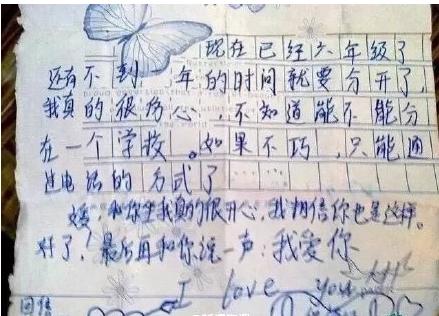 现在已经六年级了
还有不到一年的时间就要分开了,
我真的很伤心,不知道能不能分
在一个学校。如果不巧,只能通
过电话的方式了……
和你坐我真的很开心,我相信你也是这样。
好了!最后再和你说一声:我爱你
I love you
回信